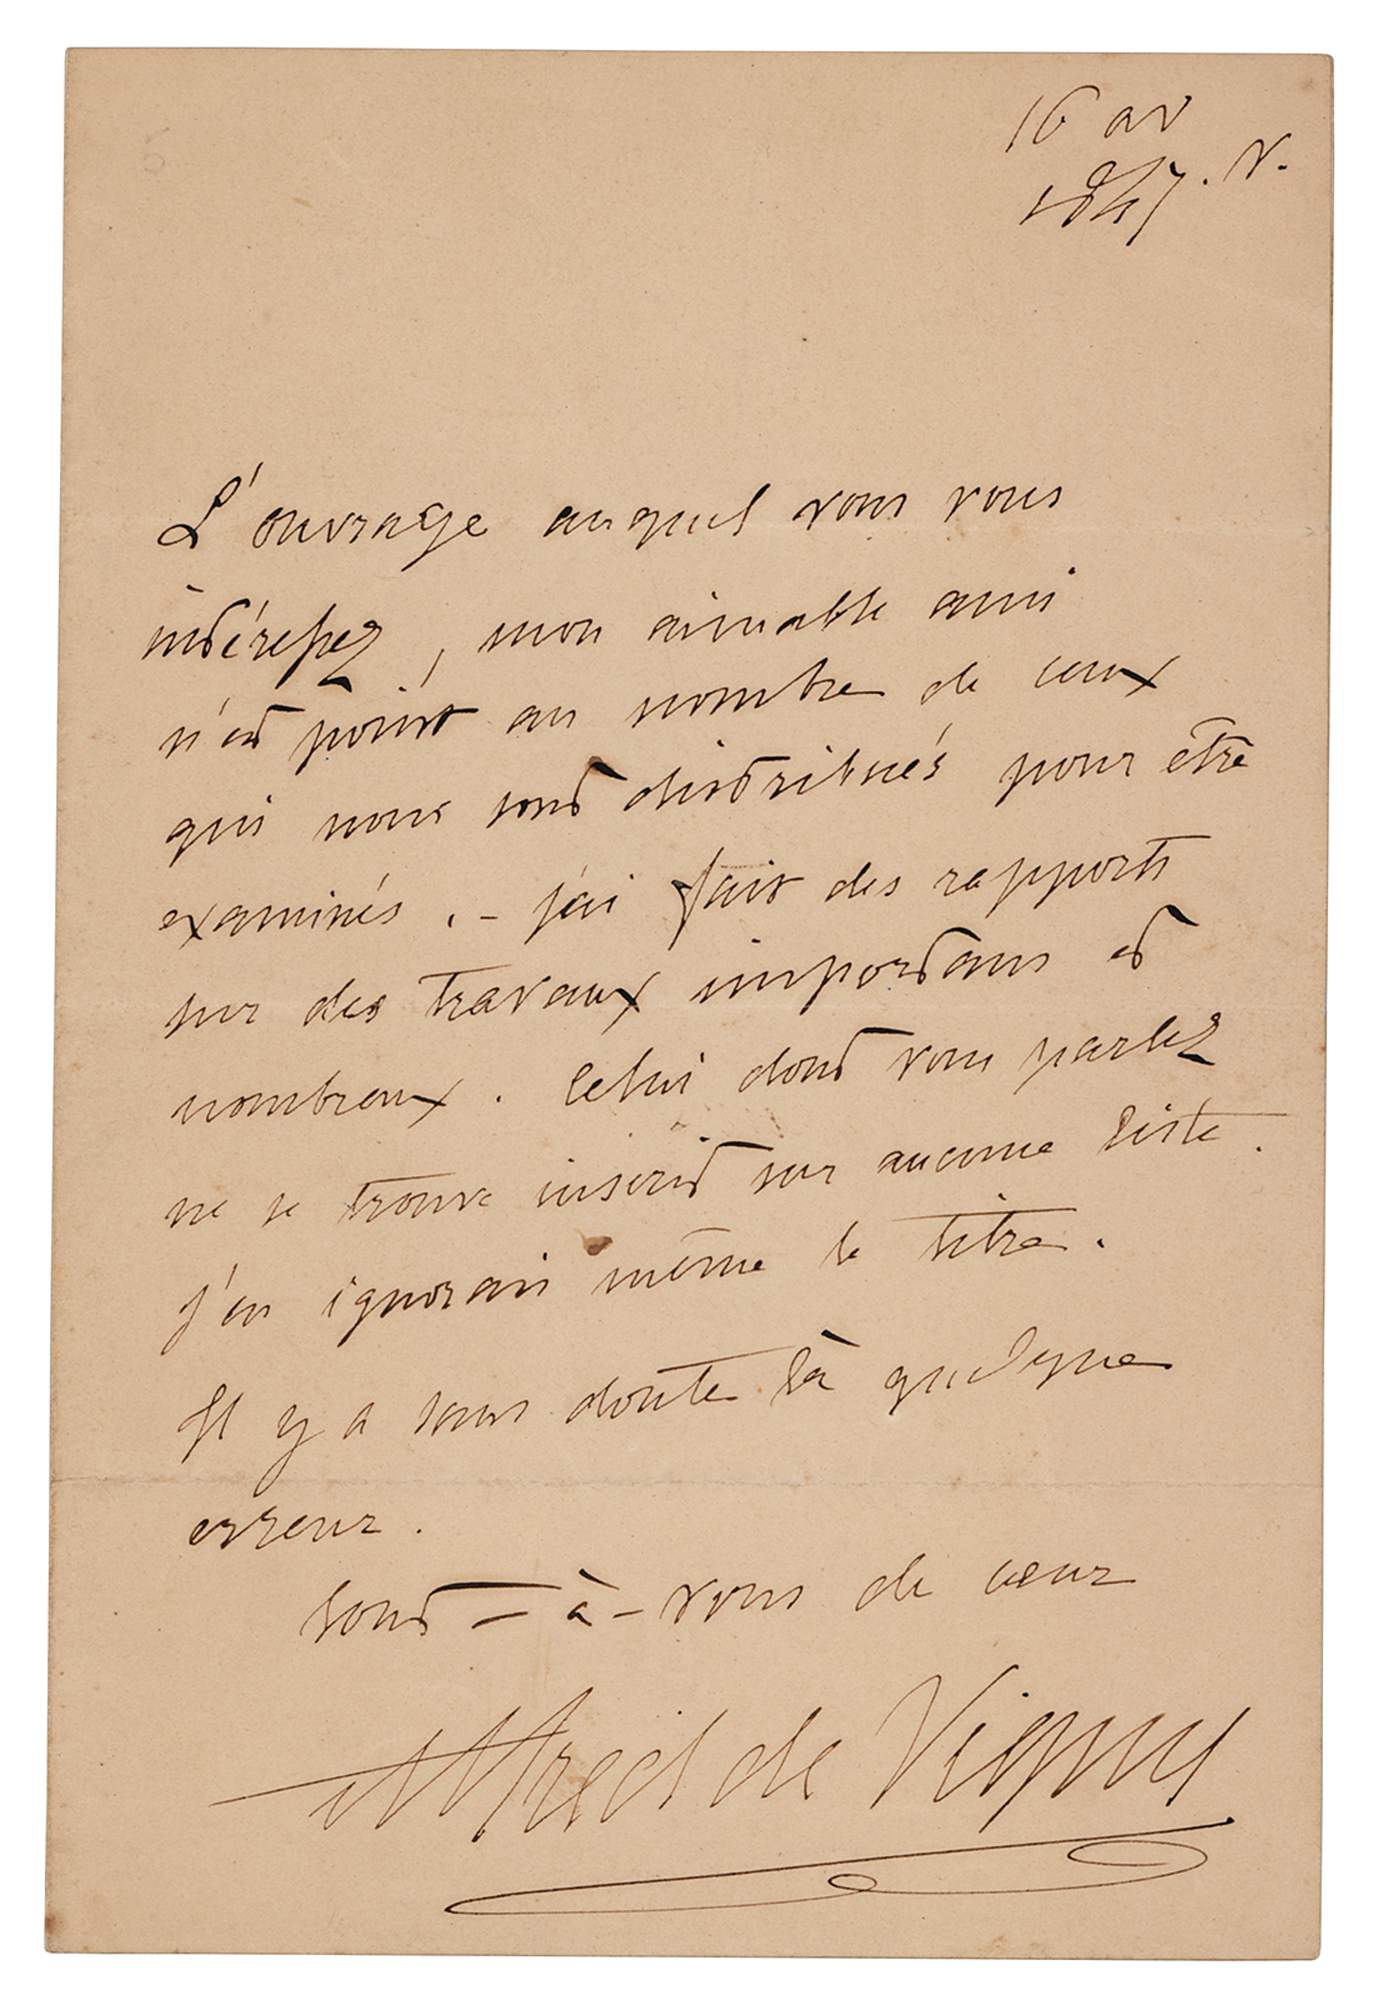 16 av
1847. V.
L'ouvrage auquel vous vous
intéressez, mon aimable ami
n'est point au nombre de ceux
qui nous sont distribués pour être
examinés. – j'ai fait des rapports
sur des travaux importans et
nombreux. Celui dont vous parlez
ne se trouve inscrit sur aucune liste.
j'en ignorais même le titre.
Il y a sans doute là quelque
erreur.
tout – à – vous de cœur
Alfred de Vigny